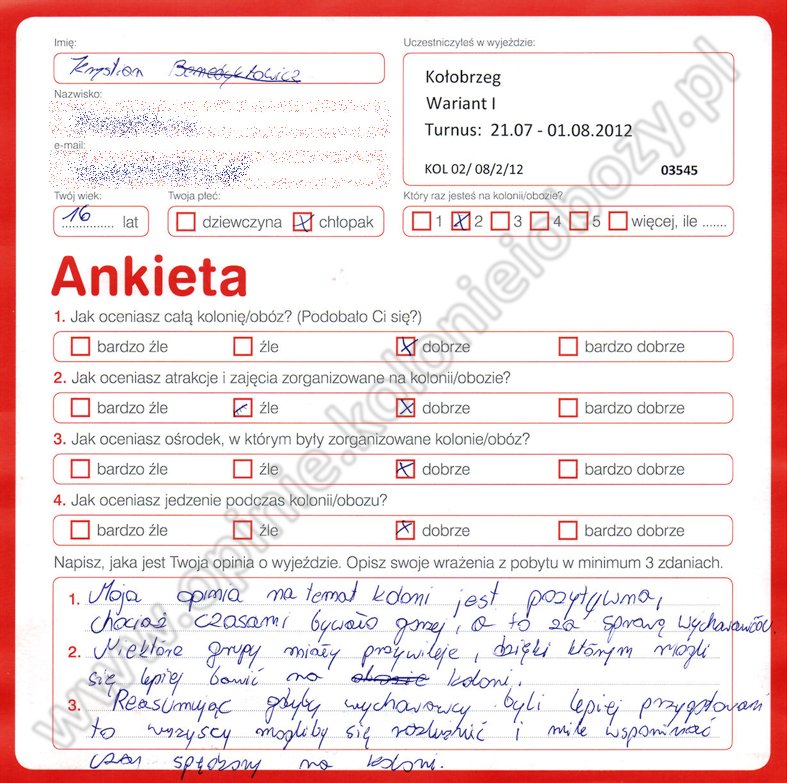 Imię:
Krystian Benedyktowicz
Uczestniczyłeś w wyjeździe:
Kołobrzeg
Wariant I
Turnus: 21.07 - 01.08.2012
KOL 02/ 08/2/12 03545
Nazwisko:
e-mail:
Twój wiek:
16 lat
Twoja płeć:
dziewczyna chłopak
Który raz jesteś na kolonii/obozie?
1 2 3 4 5 więcej, ile .......
Ankieta
1. Jak oceniasz całą kolonię/obóz? (Podobało Ci się?)
bardzo źle źle dobrze bardzo dobrze
2. Jak oceniasz atrakcje i zajęcia zorganizowane na kolonii/obozie?
bardzo źle źle dobrze bardzo dobrze
3. Jak oceniasz ośrodek, w którym były zorganizowane kolonie/obóz?
bardzo źle źle dobrze bardzo dobrze
4. Jak oceniasz jedzenie podczas kolonii/obozu?
bardzo źle źle dobrze bardzo dobrze
Napisz, jaka jest Twoja opinia o wyjeździe. Opisz swoje wrażenia z pobytu w minimum 3 zdaniach.
1. Moja opinia na temat koloni jest pozytywna,
chociaż czasami bywało gorzej, a to za sprawą wychowawców.
2. Niektóre grupy miały przywileje, dzięki którym mogli
się lepiej bawić na koloni.
3. Reasumując gdyby wychowawcy byli lepiej przygotowani
to wszyscy mogliby się rozluźnić i mile wspominać
czas spędzony na koloni.
www.opinie.kolonieiobozy.pl